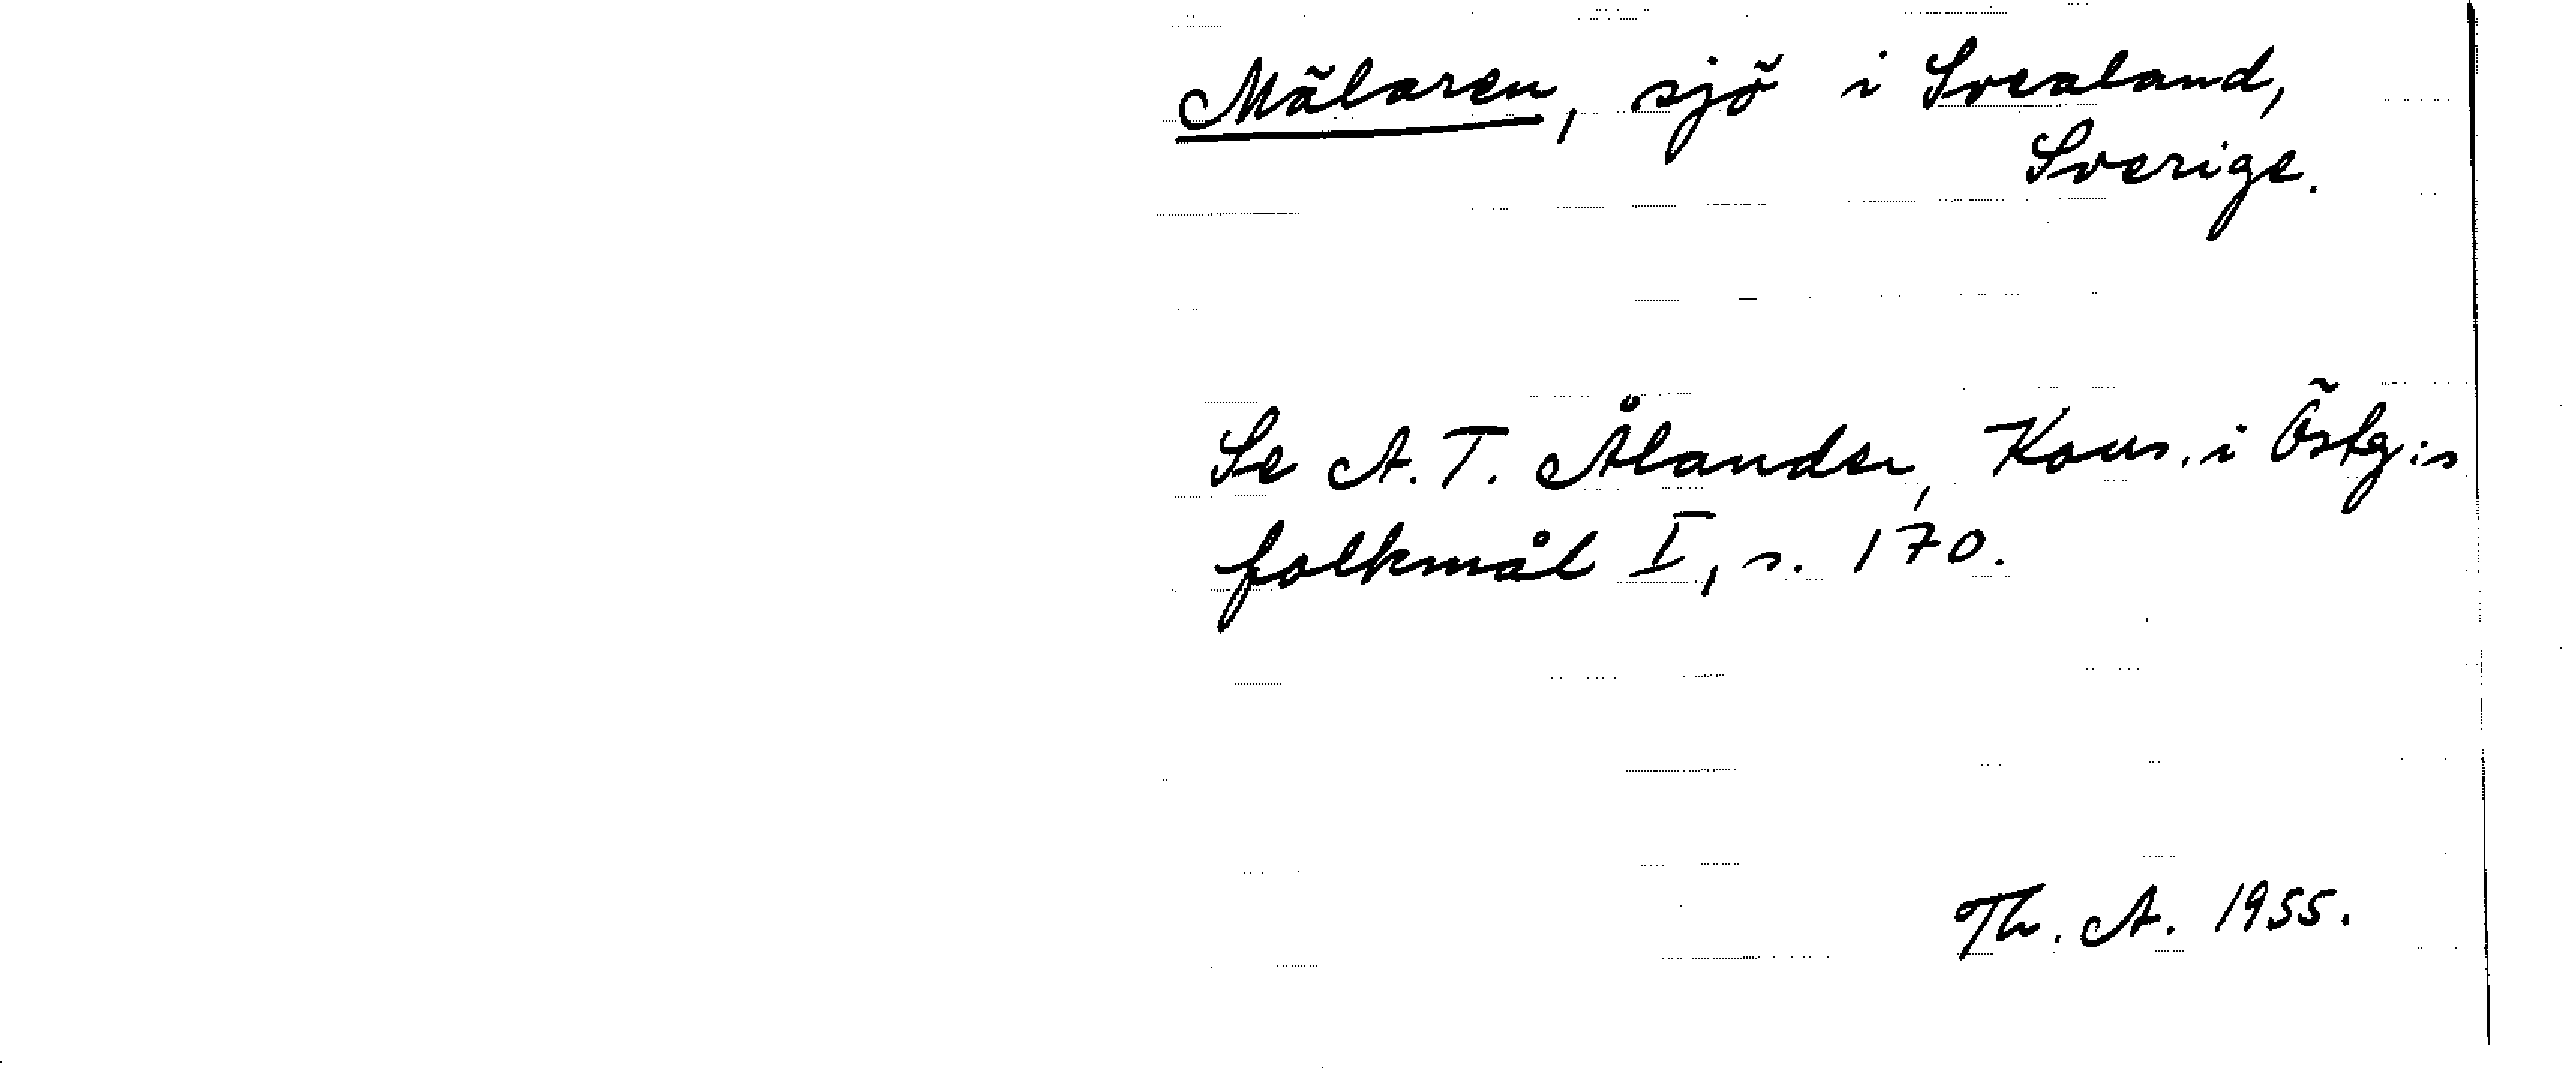 Mälaren, sjö i Svealand,
Sverige.
Se A. T. Ålander, Kons. i Östg:s
folkmål I, s. 170.
Th. A. 1955.